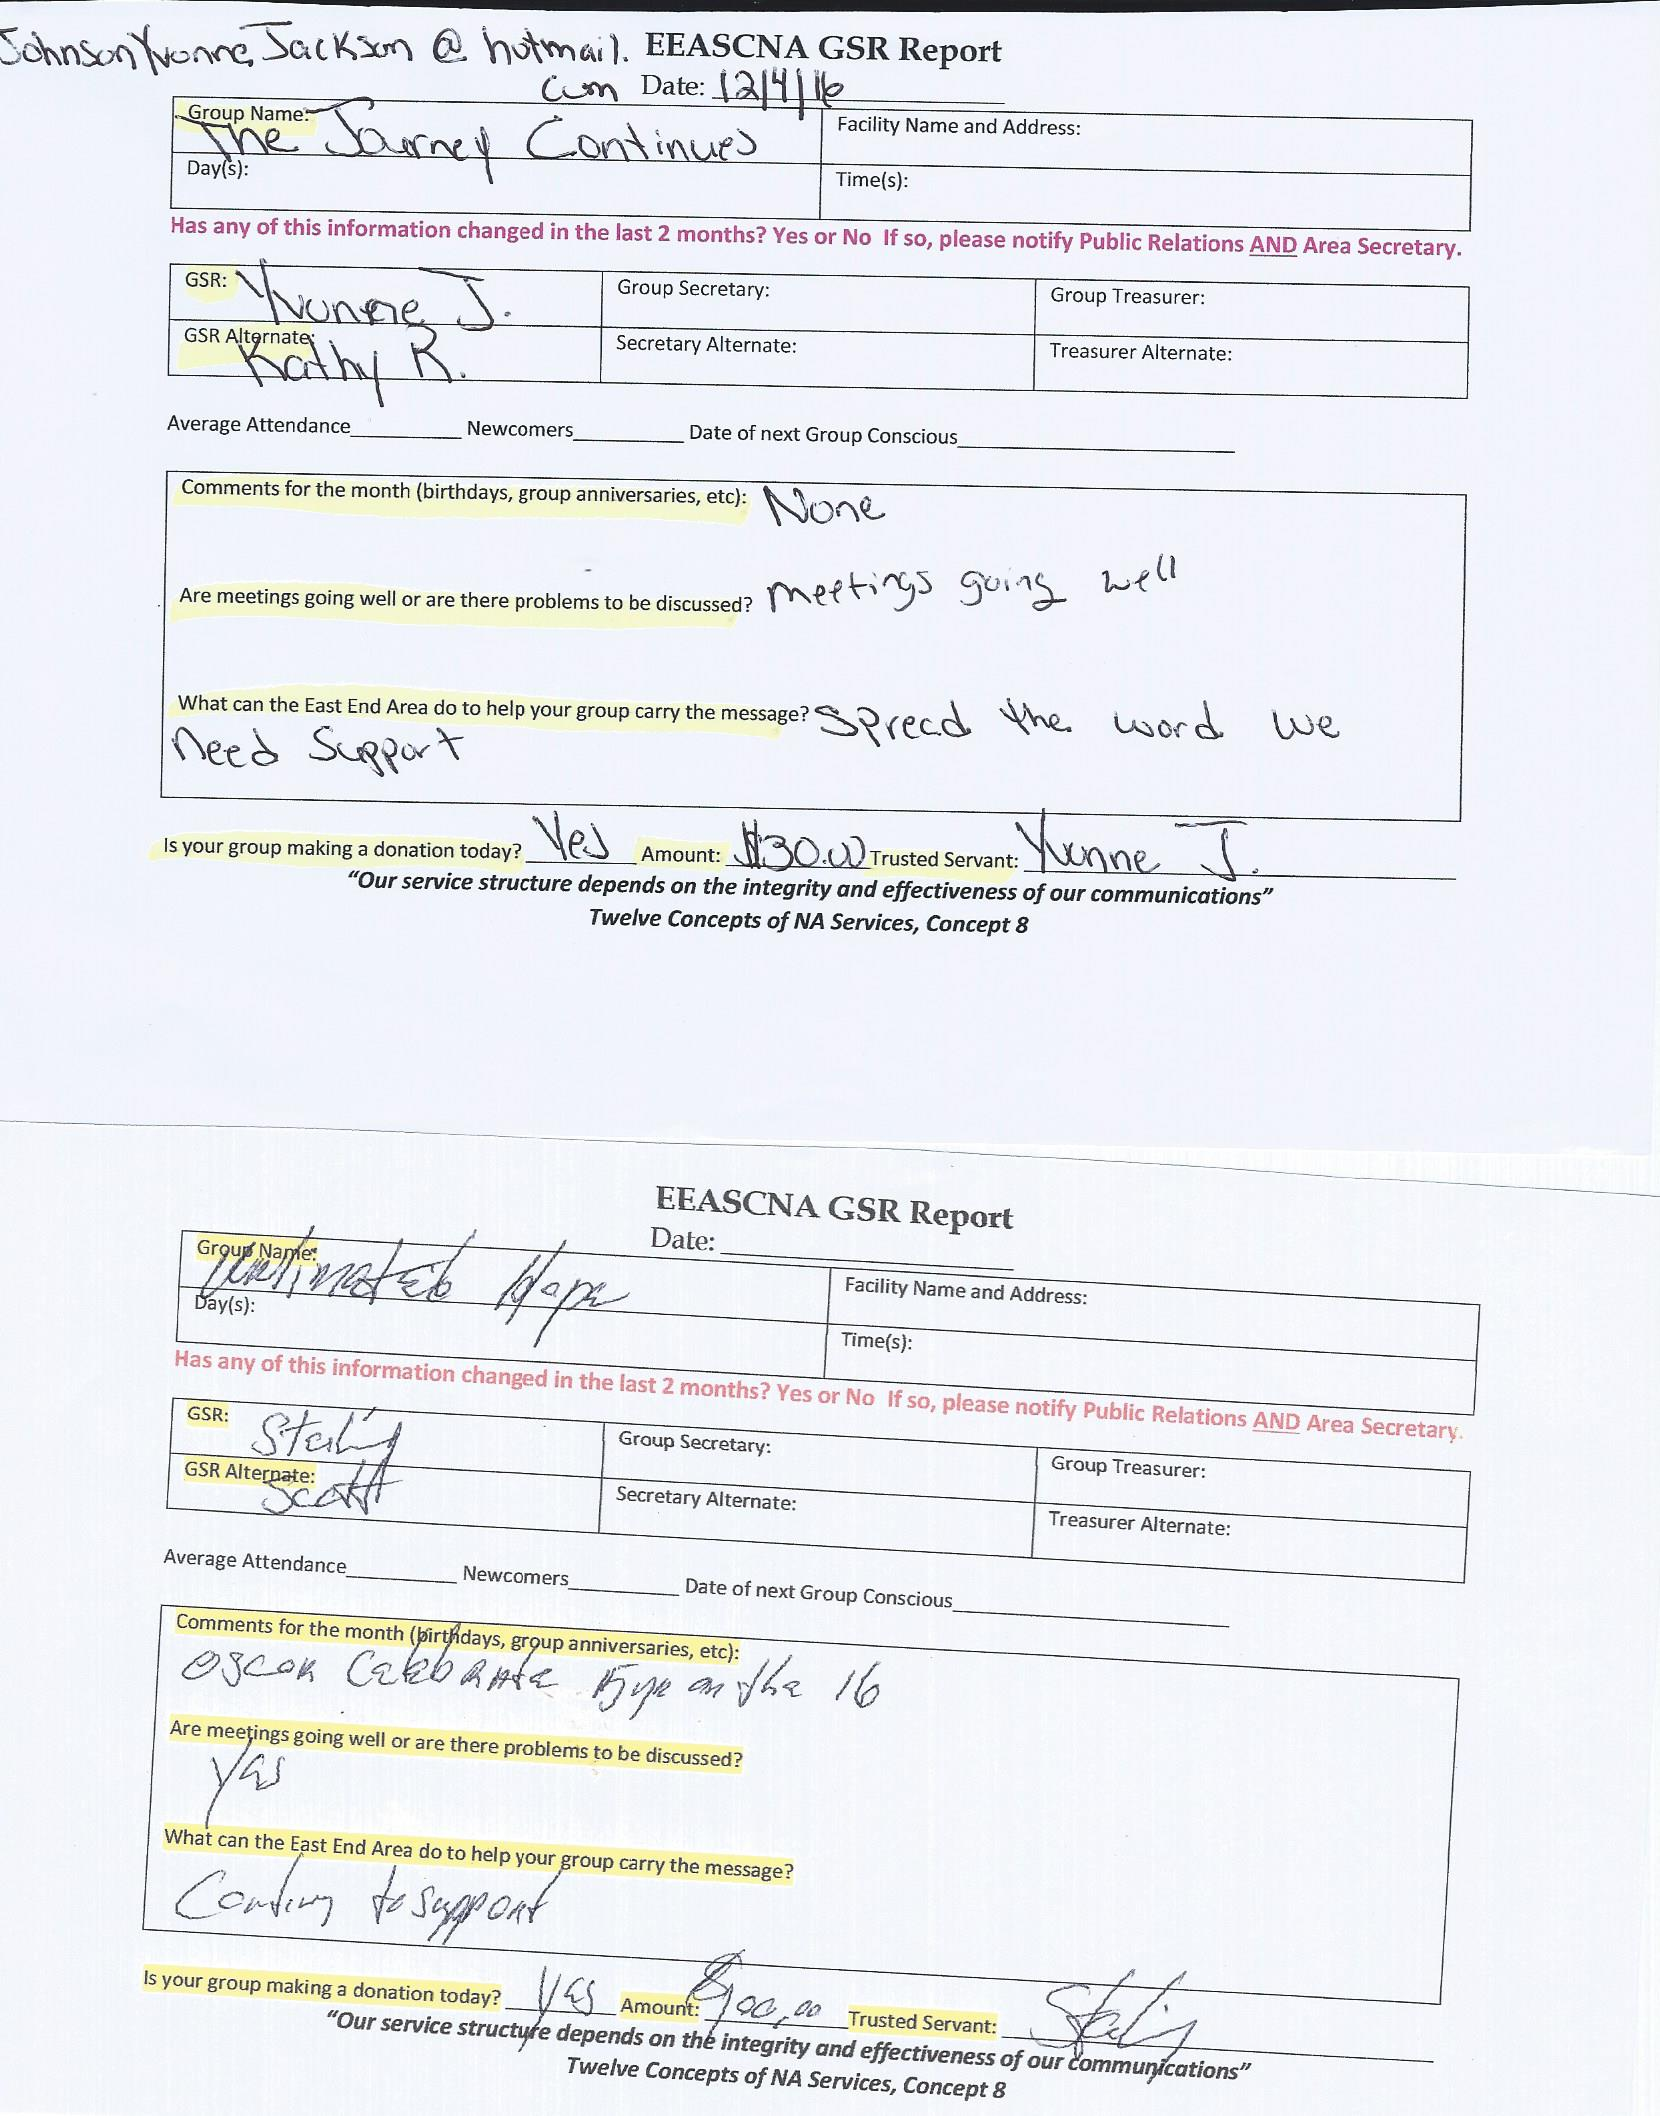 JohnsonYvonneJackson @ hotmail. EEASCNA GSR Report
com Date: 12/4/16
Group Name: Facility Name and Address:
The Journey Continues
Day(s): Time(s):
Has any of this information changed in the last 2 months? Yes or No If so, please notify Public Relations AND Area Secretary.
GSR: Yvonne J. Group Secretary: Group Treasurer:
GSR Alternate: Kathy R. Secretary Alternate: Treasurer Alternate:
Average Attendance Newcomers Date of next Group Conscious
Comments for the month (birthdays, group anniversaries, etc): None
Are meetings going well or are there problems to be discussed? meetings going well
What can the East End Area do to help your group carry the message? Spread the word we
need Support
Is your group making a donation today? Yes Amount: $30.00 Trusted Servant: Yvonne J.
"Our service structure depends on the integrity and effectiveness of our communications"
Twelve Concepts of NA Services, Concept 8
EEASCNA GSR Report
Date:
Group Name: Facility Name and Address:
Hope
Day(s): Time(s):
Has any of this information changed in the last 2 months? Yes or No If so, please notify Public Relations AND Area Secretary.
GSR: Group Secretary: Group Treasurer:
GSR Alternate: Scott Secretary Alternate: Treasurer Alternate:
Average Attendance Newcomers Date of next Group Conscious
Comments for the month (birthdays, group anniversaries, etc):
Oscar on the 16
Are meetings going well or are there problems to be discussed?
yes
What can the East End Area do to help your group carry the message?
to support
Is your group making a donation today? yes Amount: Trusted Servant:
"Our service structure depends on the integrity and effectiveness of our communications"
Twelve Concepts of NA Services, Concept 8